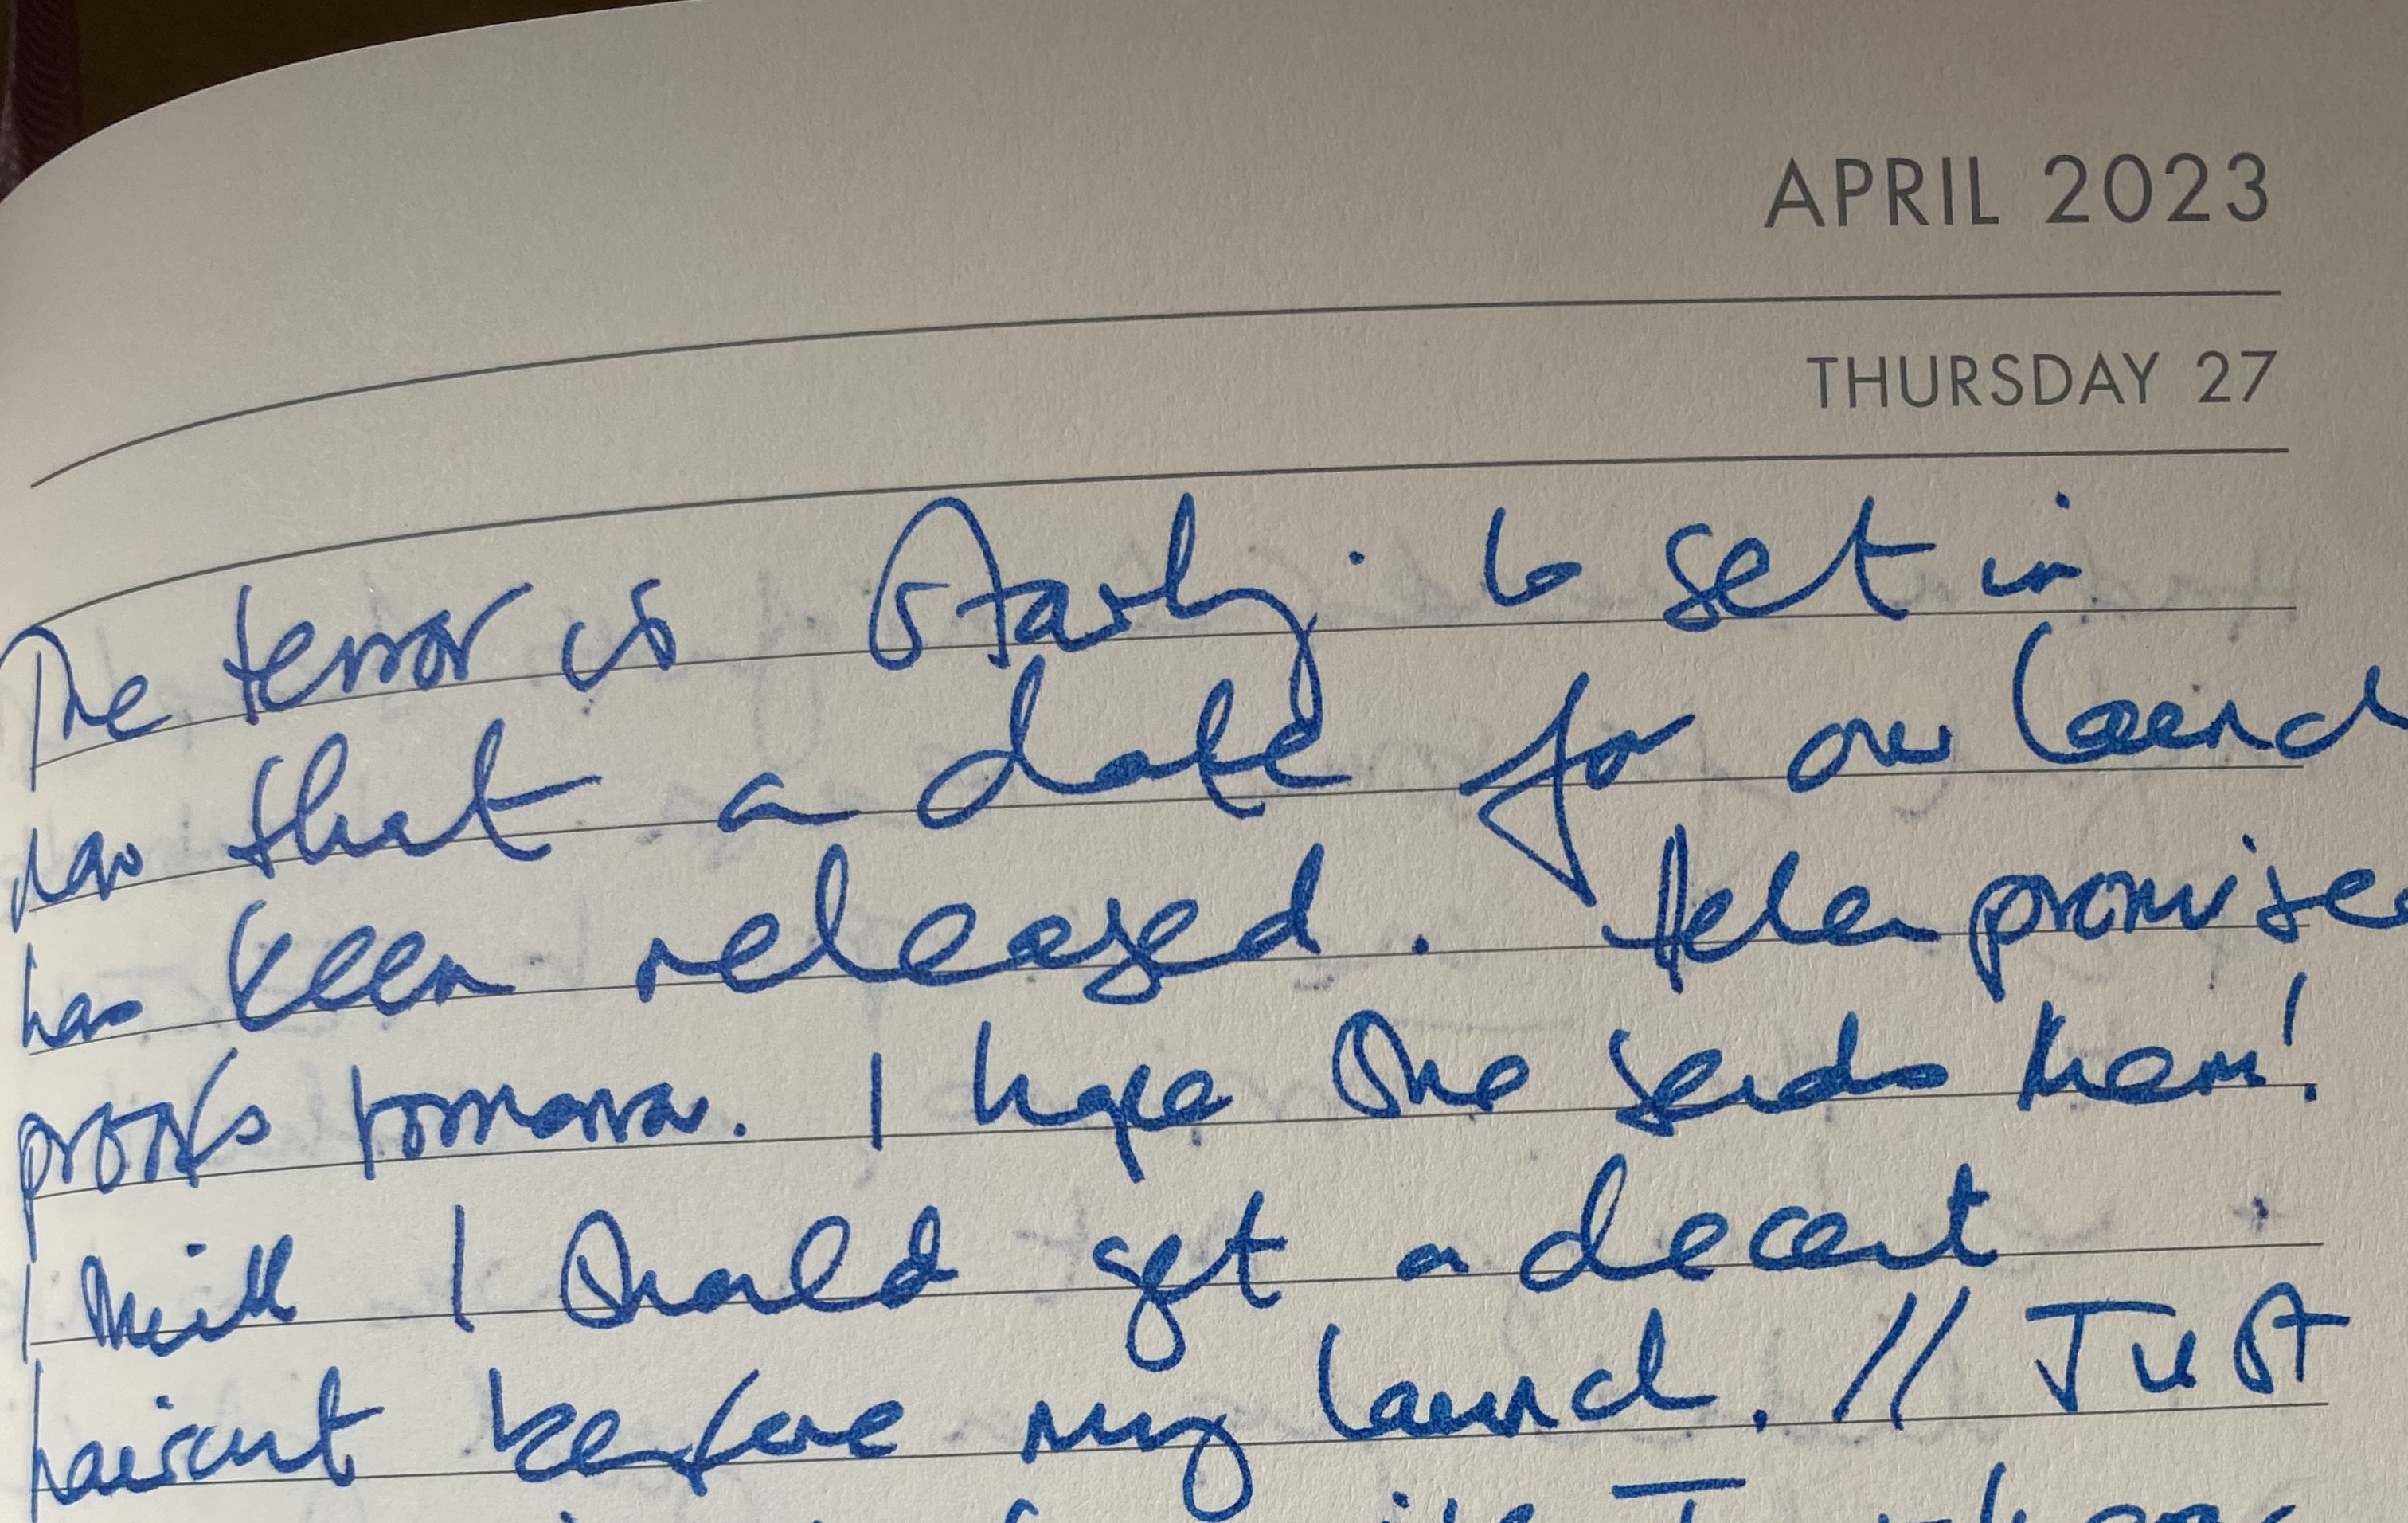 APRIL 2023
THURSDAY 27
The terror is starting to set in
now that a date for our launch
has been released. Helen promised
proofs tomorrow. I hope she sends them!
I think I should get a decent
haircut before my launch. // Just